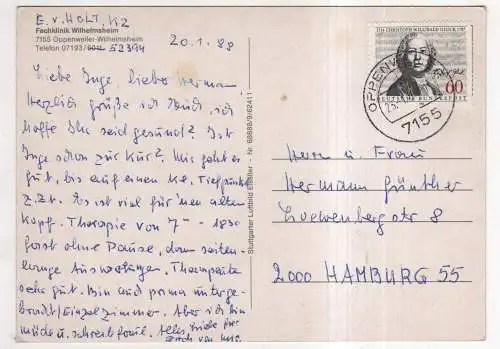 E. v. HOLT, K2
Fachklinik Wilhelmsheim
7155 Oppenweiler-Wilhelmsheim
Telefon 07193/ 52394
20.1.88
Liebe Inge, lieber Herman
Herzlich grüße ich Euch, ich
hoffe Ihr seid gesund? Ist
Inge schon zur Kur? Mir geht es
gut, bis auf einen kl. Tiefpunkt
z.Zt. Es ist viel für 'nen alten
Kopf. Therapie von 7 – 18³⁰
fast ohne Pause, dann seiten-
lange Auswertungen. Therapeuten
sehr gut. Bin auch prima unterge-
bracht/Einzelzimmer. Aber ich bin
müde u. schreibfaul. Alles Liebe für
Euch von
Stuttgarter Luftbild Elsäßer - Nr. 68888/9/62411
CHRISTOPH WILLIBALD GLUCK
60
DEUTSCHE BUNDESPOST
OPPENWEILER
7155
Herrn u. Frau
Hermann Günther
Loewenberg str 8
2000 HAMBURG 55